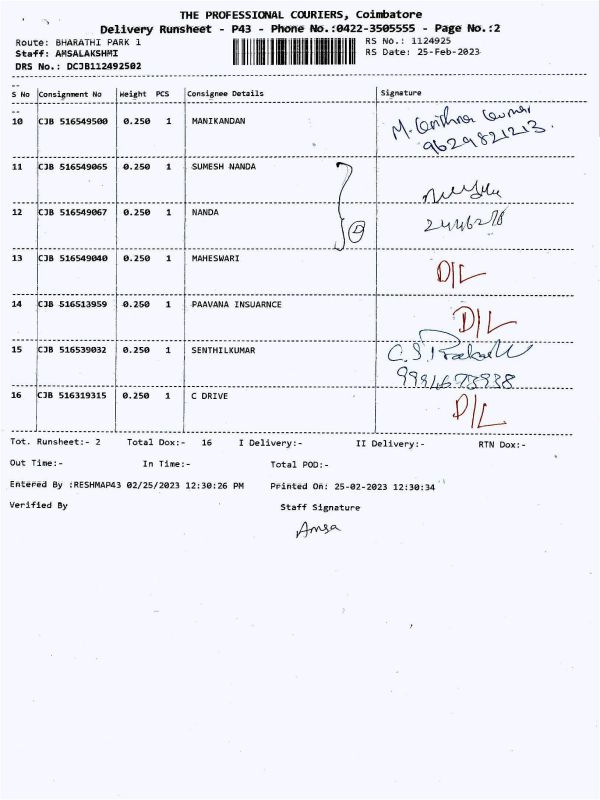 THE PROFESSIONAL COURIERS, Coimbatore
Delivery Runsheet - P43 - Phone No.:0422-3505555 - Page No.:2
Route: BHARATHI PARK 1 RS No.: 1124925
Staff: AMSALAKSHMI RS Date: 25-Feb-2023
DRS No.: DCJB112492502
S No Consignment No Weight PCS Consignee Details Signature
10 CJB 516549500 0.250 1 MANIKANDAN
9629821213
11 CJB 516549065 0.250 1 SUMESH NANDA
12 CJB 516549067 0.250 1 NANDA
13 CJB 516549040 0.250 1 MAHESWARI D/L
14 CJB 516513959 0.250 1 PAAVANA INSUARNCE D/L
15 CJB 516539032 0.250 1 SENTHILKUMAR
16 CJB 516319315 0.250 1 C DRIVE D/L
Tot. Runsheet:- 2 Total Dox:- 16 I Delivery:- II Delivery:- RTN Dox:-
Out Time:- In Time:- Total POD:-
Entered By :RESHMAP43 02/25/2023 12:30:26 PM Printed On: 25-02-2023 12:30:34
Verified By Staff Signature
Amsa